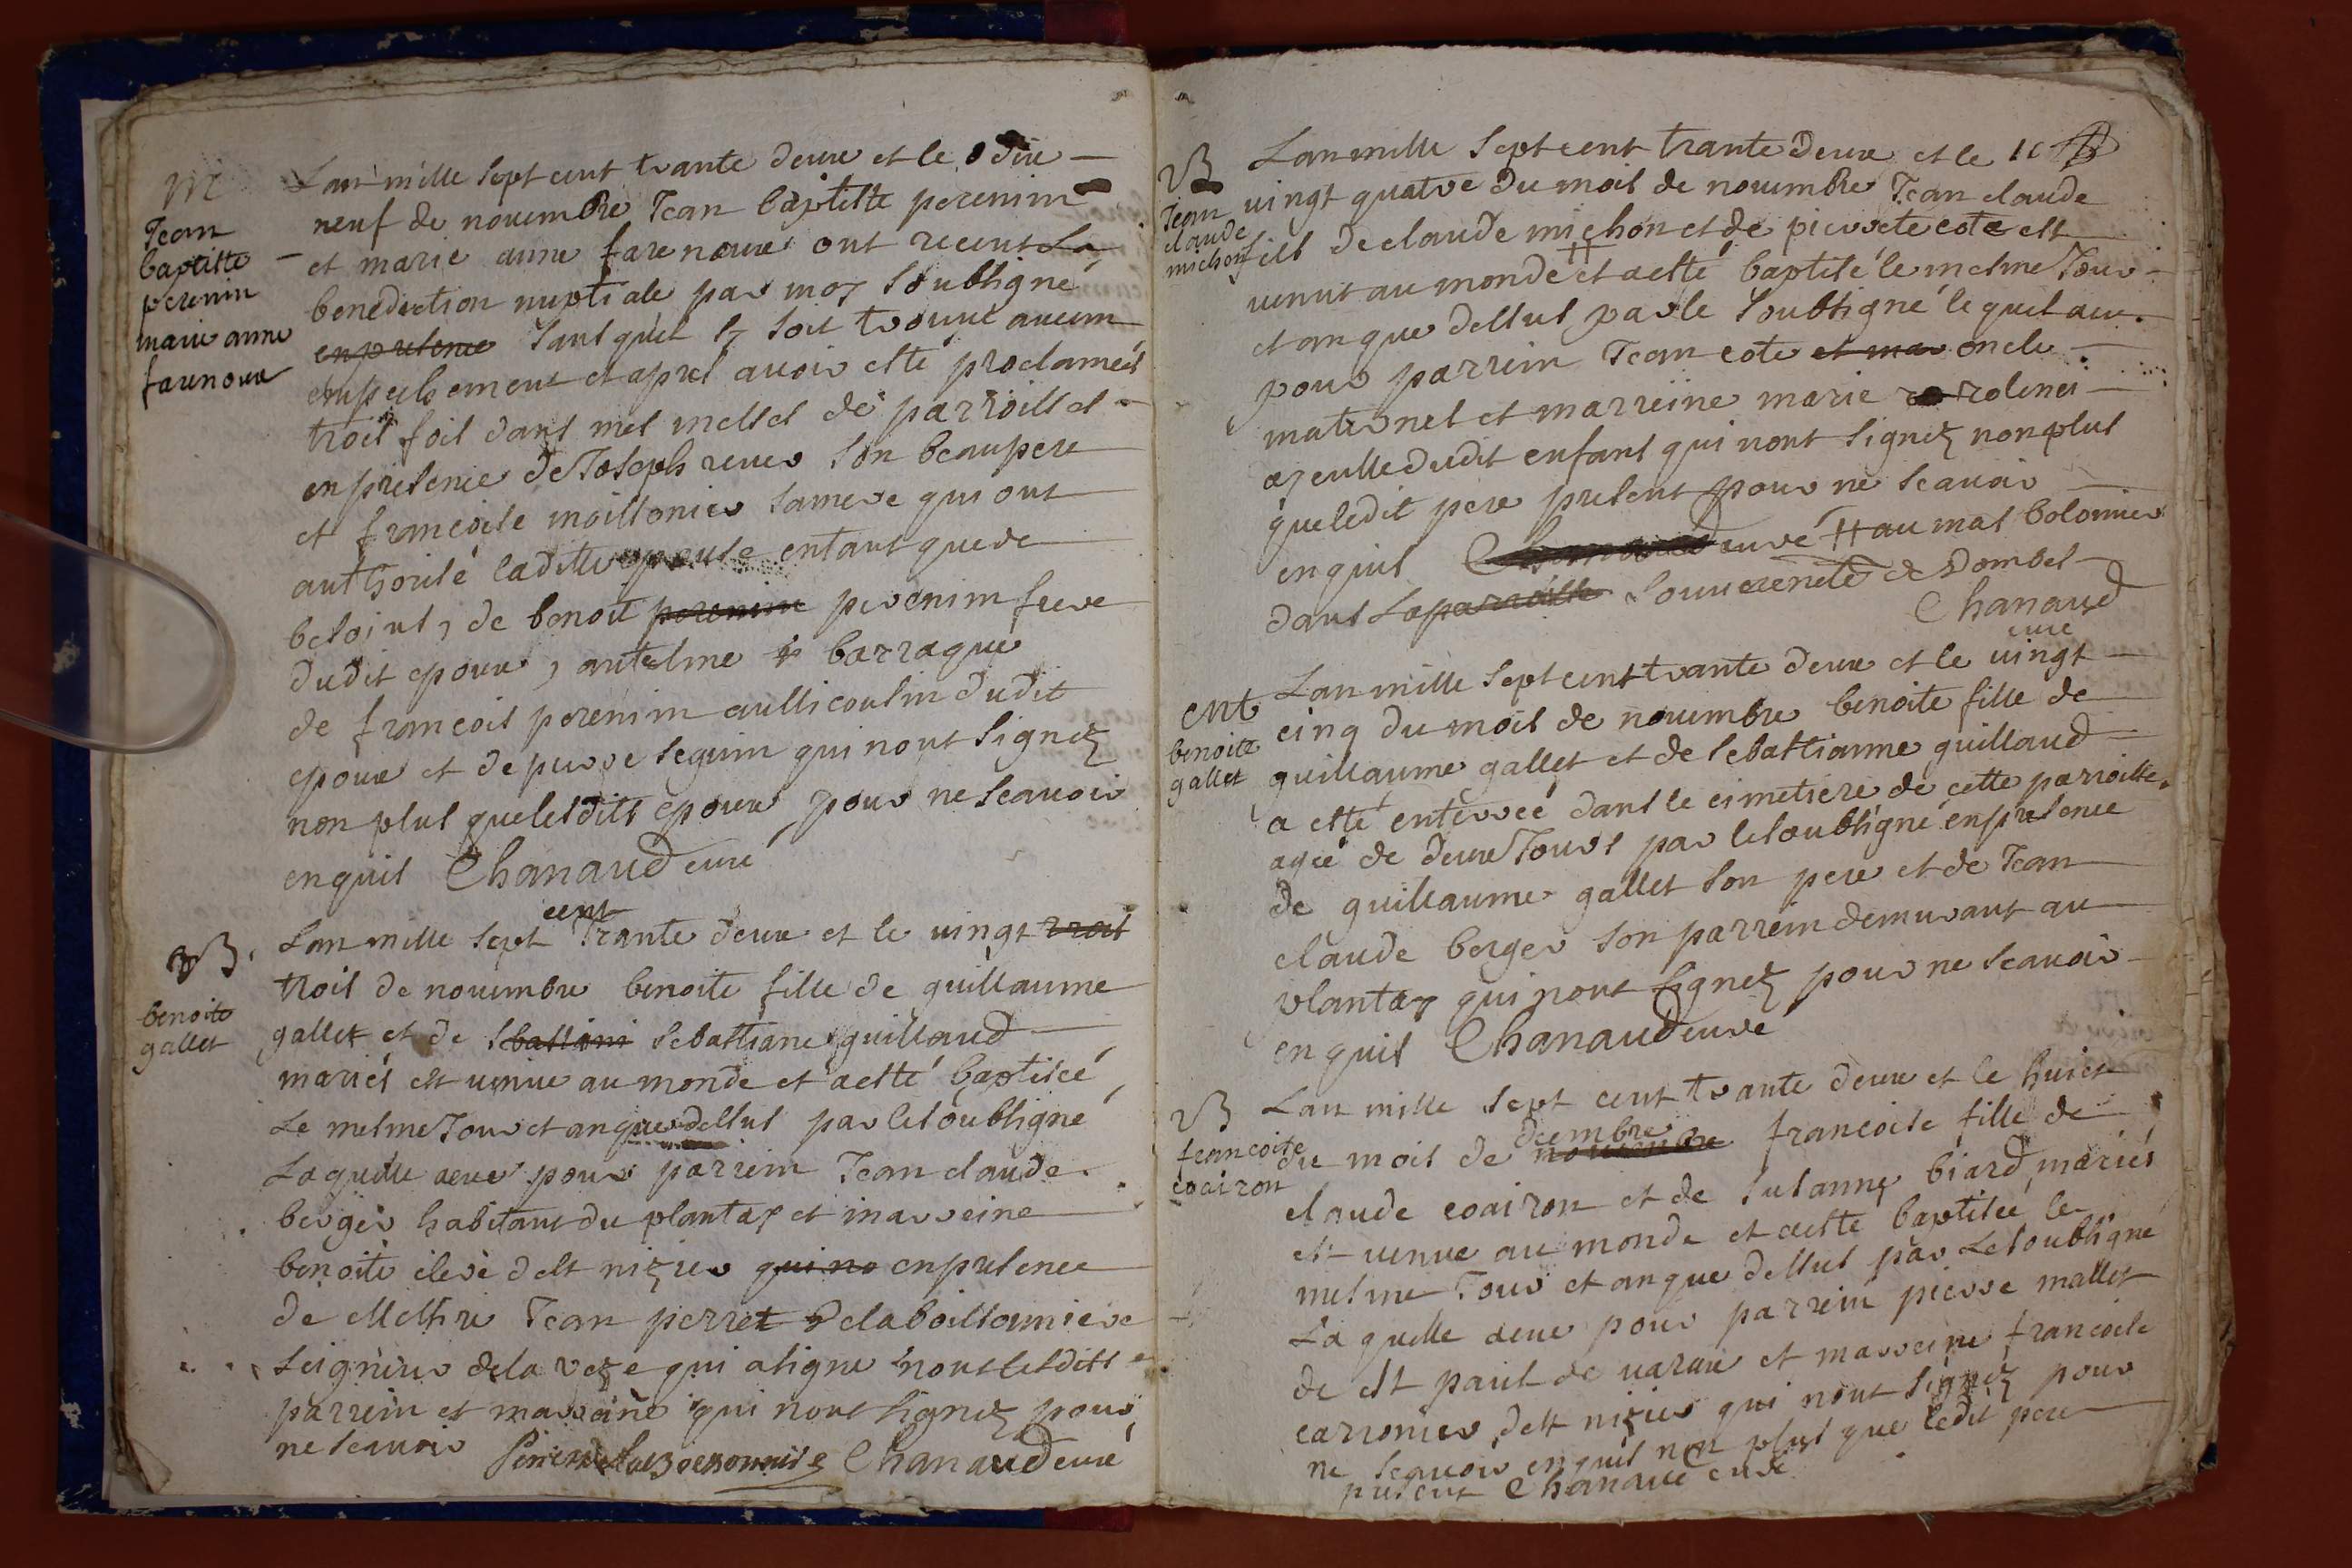 M
Jean
baptiste
perenin
marie anne
farenoux
Lan mille sept cent trante deux et le dix
neuf de novembre Jean baptiste perenin
et marie anne farenoux ont receut La
benediction nuptiale par moy soubsigné
en presence sans quil sy soit trouvé aucun
empeschement et apres avoir esté proclameés
trois fois dans mes messes de parroisses
en presence de Joseph rever son beaupere
et francoise moissonier sa mere qui ont
authorisé laditte epouse entant que de
besoint, de benoit perenin perenin frere
dudit epoux, antelme barraque
de francois perenin aussi cousin dudit
epoux et de pierre seguin qui nont signez
non plus que lesdits epoux pour ne scavoir
enquis Chanaud curé
B.
benoite
gallet
Lan mille sept cent trante deux et le vingt trois
trois de novembre benoite fille de guillaume
gallet et de sbastiani sebastiane guillaud
mariés est venue au monde et a esté baptiseé
Le mesme Jour et an que dessus par le soubsigné
Laquelle a eue pour parrein Jean claude
berger habitant du plantay et marreine
benoite dest nizier qui no en presence
de Messire Jean perret de la boissonniere
seigneur de la veze qui a signé nont lesdits
parrein et marreine qui nont signez pour
ne scavoir Chanaud curé
B
Jean
claude
michon
Lan mille sept cent trante deux et le
vingt quatre du mois de novembre Jean claude
fils de claude michon et de pierrete cote est
venut au monde # et a esté baptisé le mesme Jour
et an que dessus par le soubsigné le quel a eu
pour parrein Jean cote et mar oncle
maternel et marreine marie rolines
ayeulle dudit enfant qui nont signez non plus
que ledit pere present pour ne scavoir
enquis curé # au mas bolomier
dans La parroisse souvereneté de Dombes
Chanaud
curé
Ent
benoite
gallet
Lan mille sept cent trante deux et le vingt
cinq du mois de novembre benoite fille de
guillaume gallet et de sebastianne guillaud
a esté enterreé dans le cimetiere de cette parroisse
ageé de deux Jours par le soubsigné en presence
de guillaume gallet son pere et de Jean
claude berger son parrein demurant au
plantay qui nont signez pour ne scavoir
enquis Chanaud curé
B
francoise
coairon
Lan mille sept cent trante deux et le huict
du mois de novembre decembre francoise fille de
claude coairon et de susanne biard mariés
est venue au monde et a esté baptiseé le
mesme Jour et an que dessus par Le soubsigné
La quelle a eue pour parrein pierre mallet
de st paul de varax et marreine francoise
carronier dest nizier qui nont signez pour
ne scavoir enquis non plus que ledit pere
present Chanaud curé